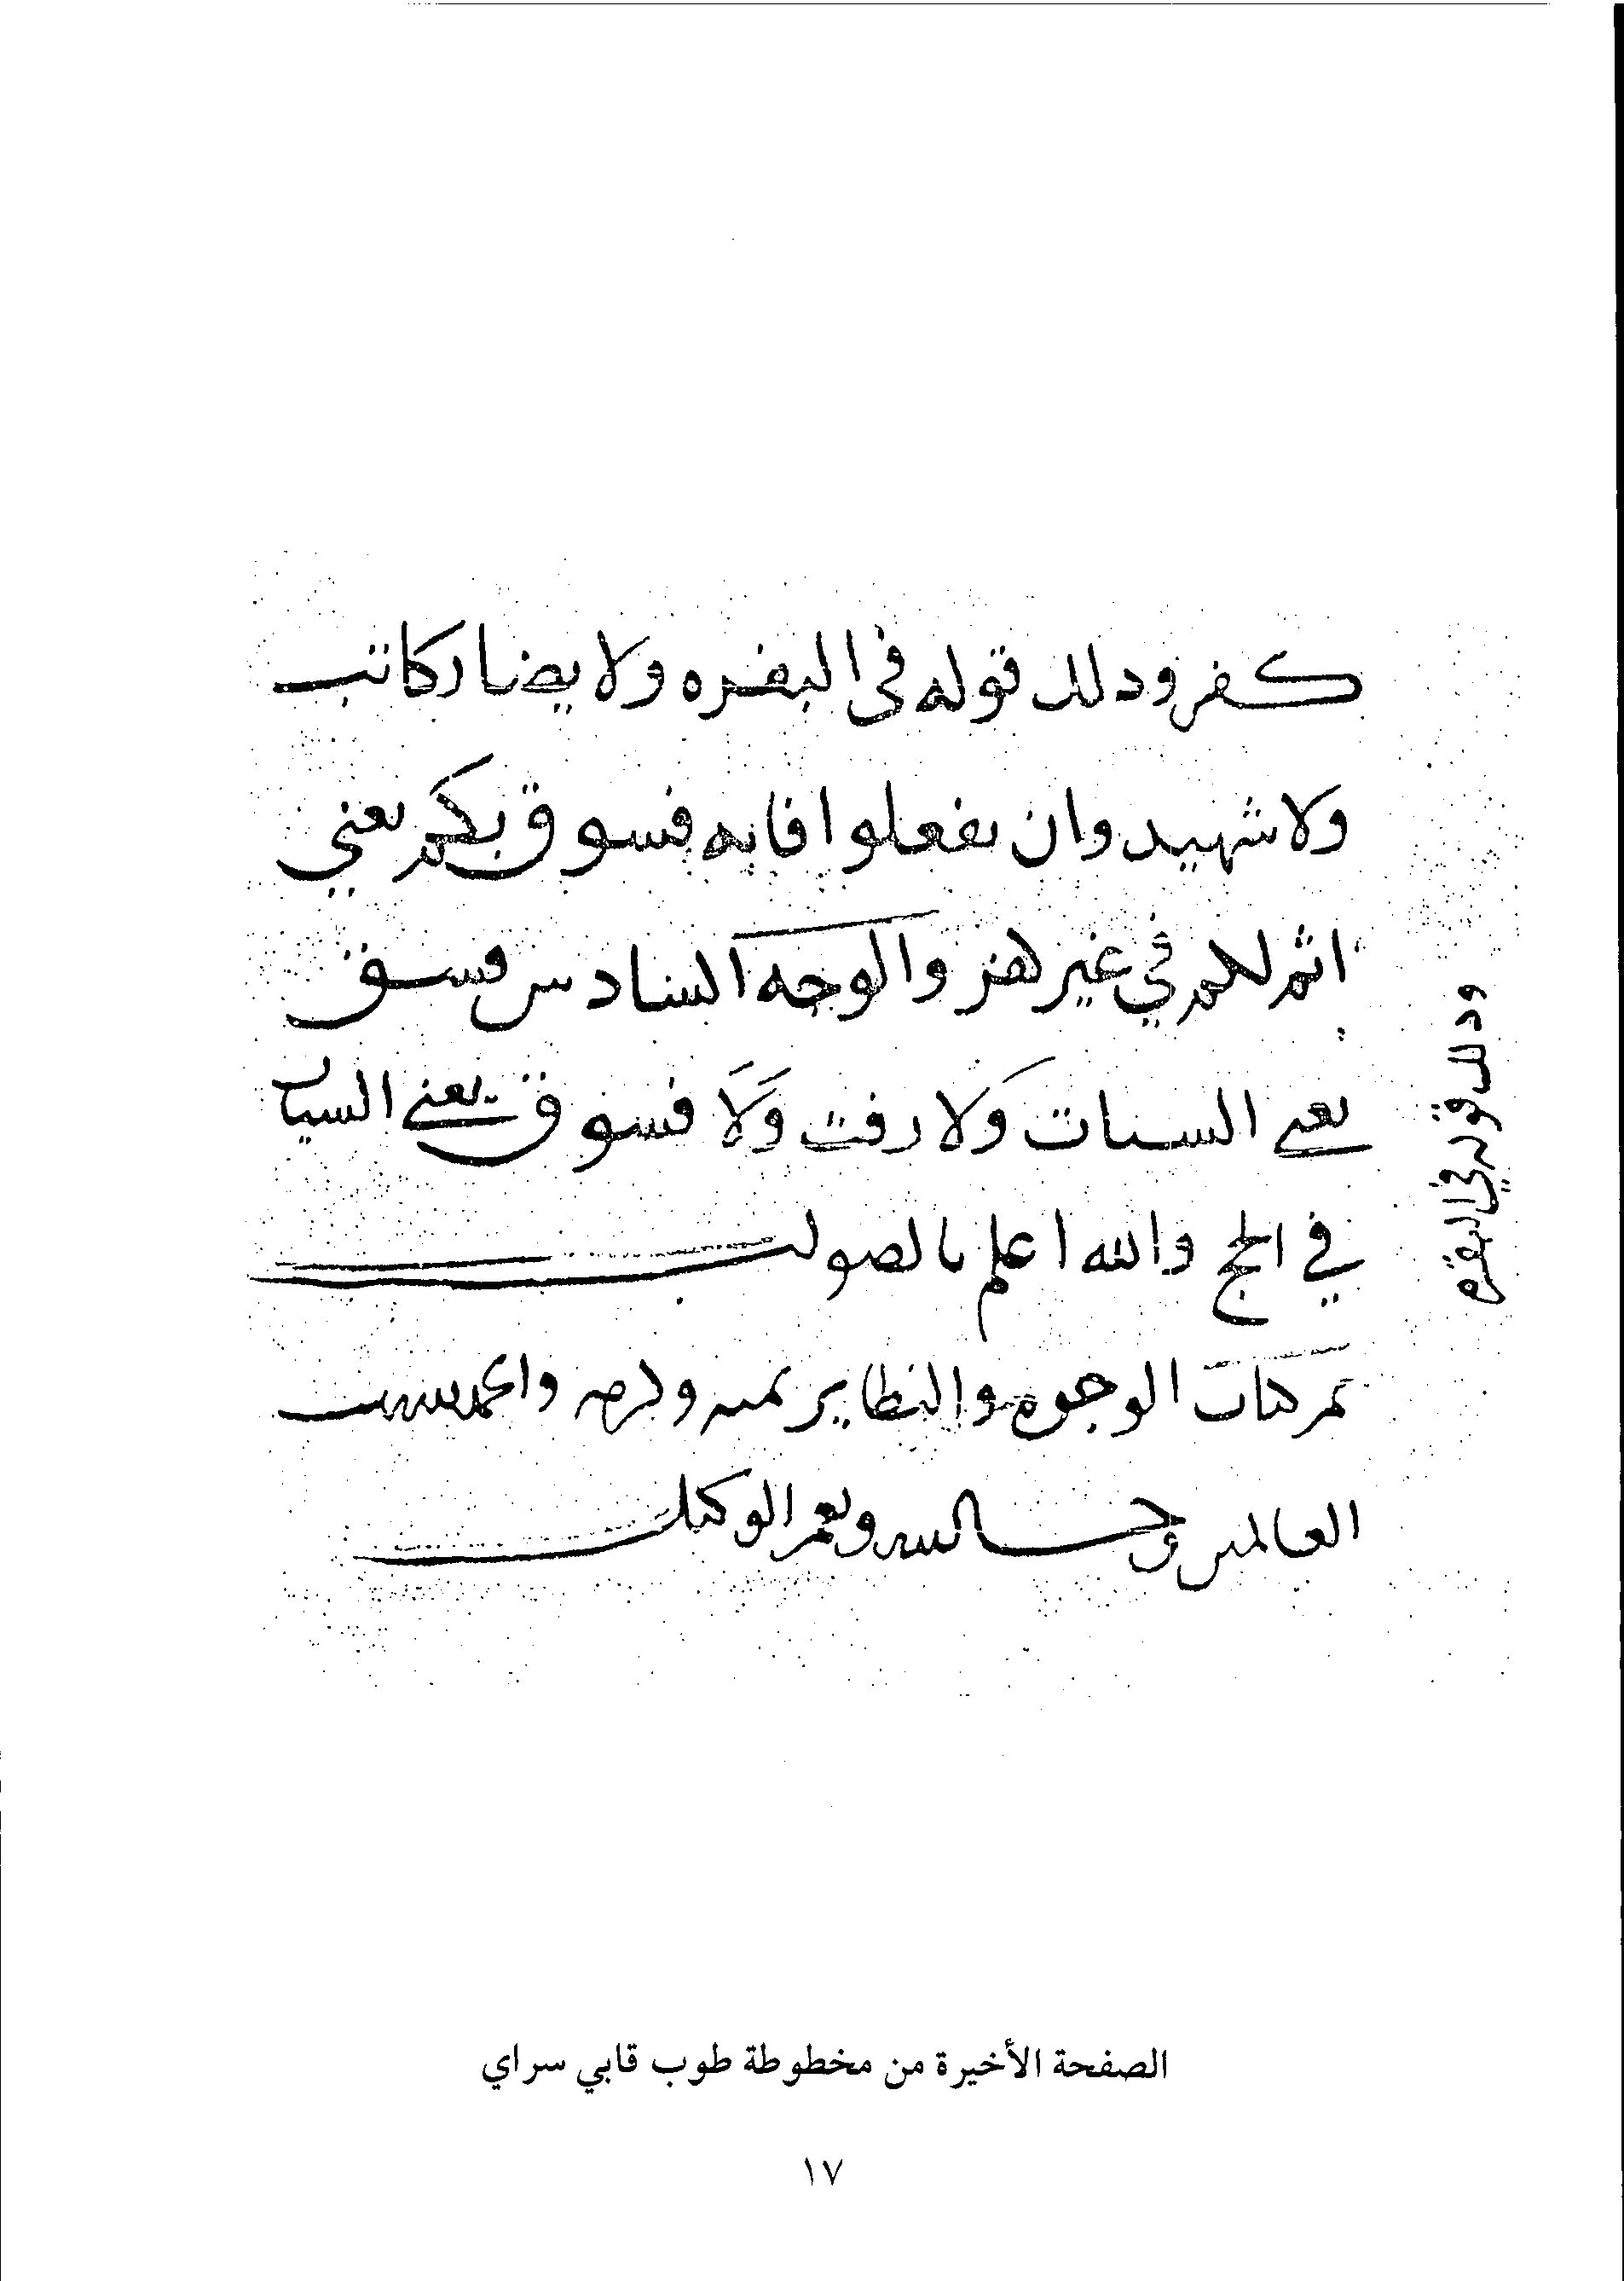 كفر وذلك قوله في البقره ولا يضار كاتب
ولا شهيد وان تفعلوا فانه فسوق بكم يعني
اثم لكم في غير كفر والوجه السادس فسق
يعني السيات ولا رفث ولا فسوق يعني السباب
في الحج والله اعلم بالصواب
تم كتاب الوجوه والنظاير بمنه وكرمه والحمد لله رب
العالمين وحسبنا الله ونعم الوكيل
وذلك قوله في البقره
الصفحة الأخيرة من مخطوطة طوب قابي سراي
١٧